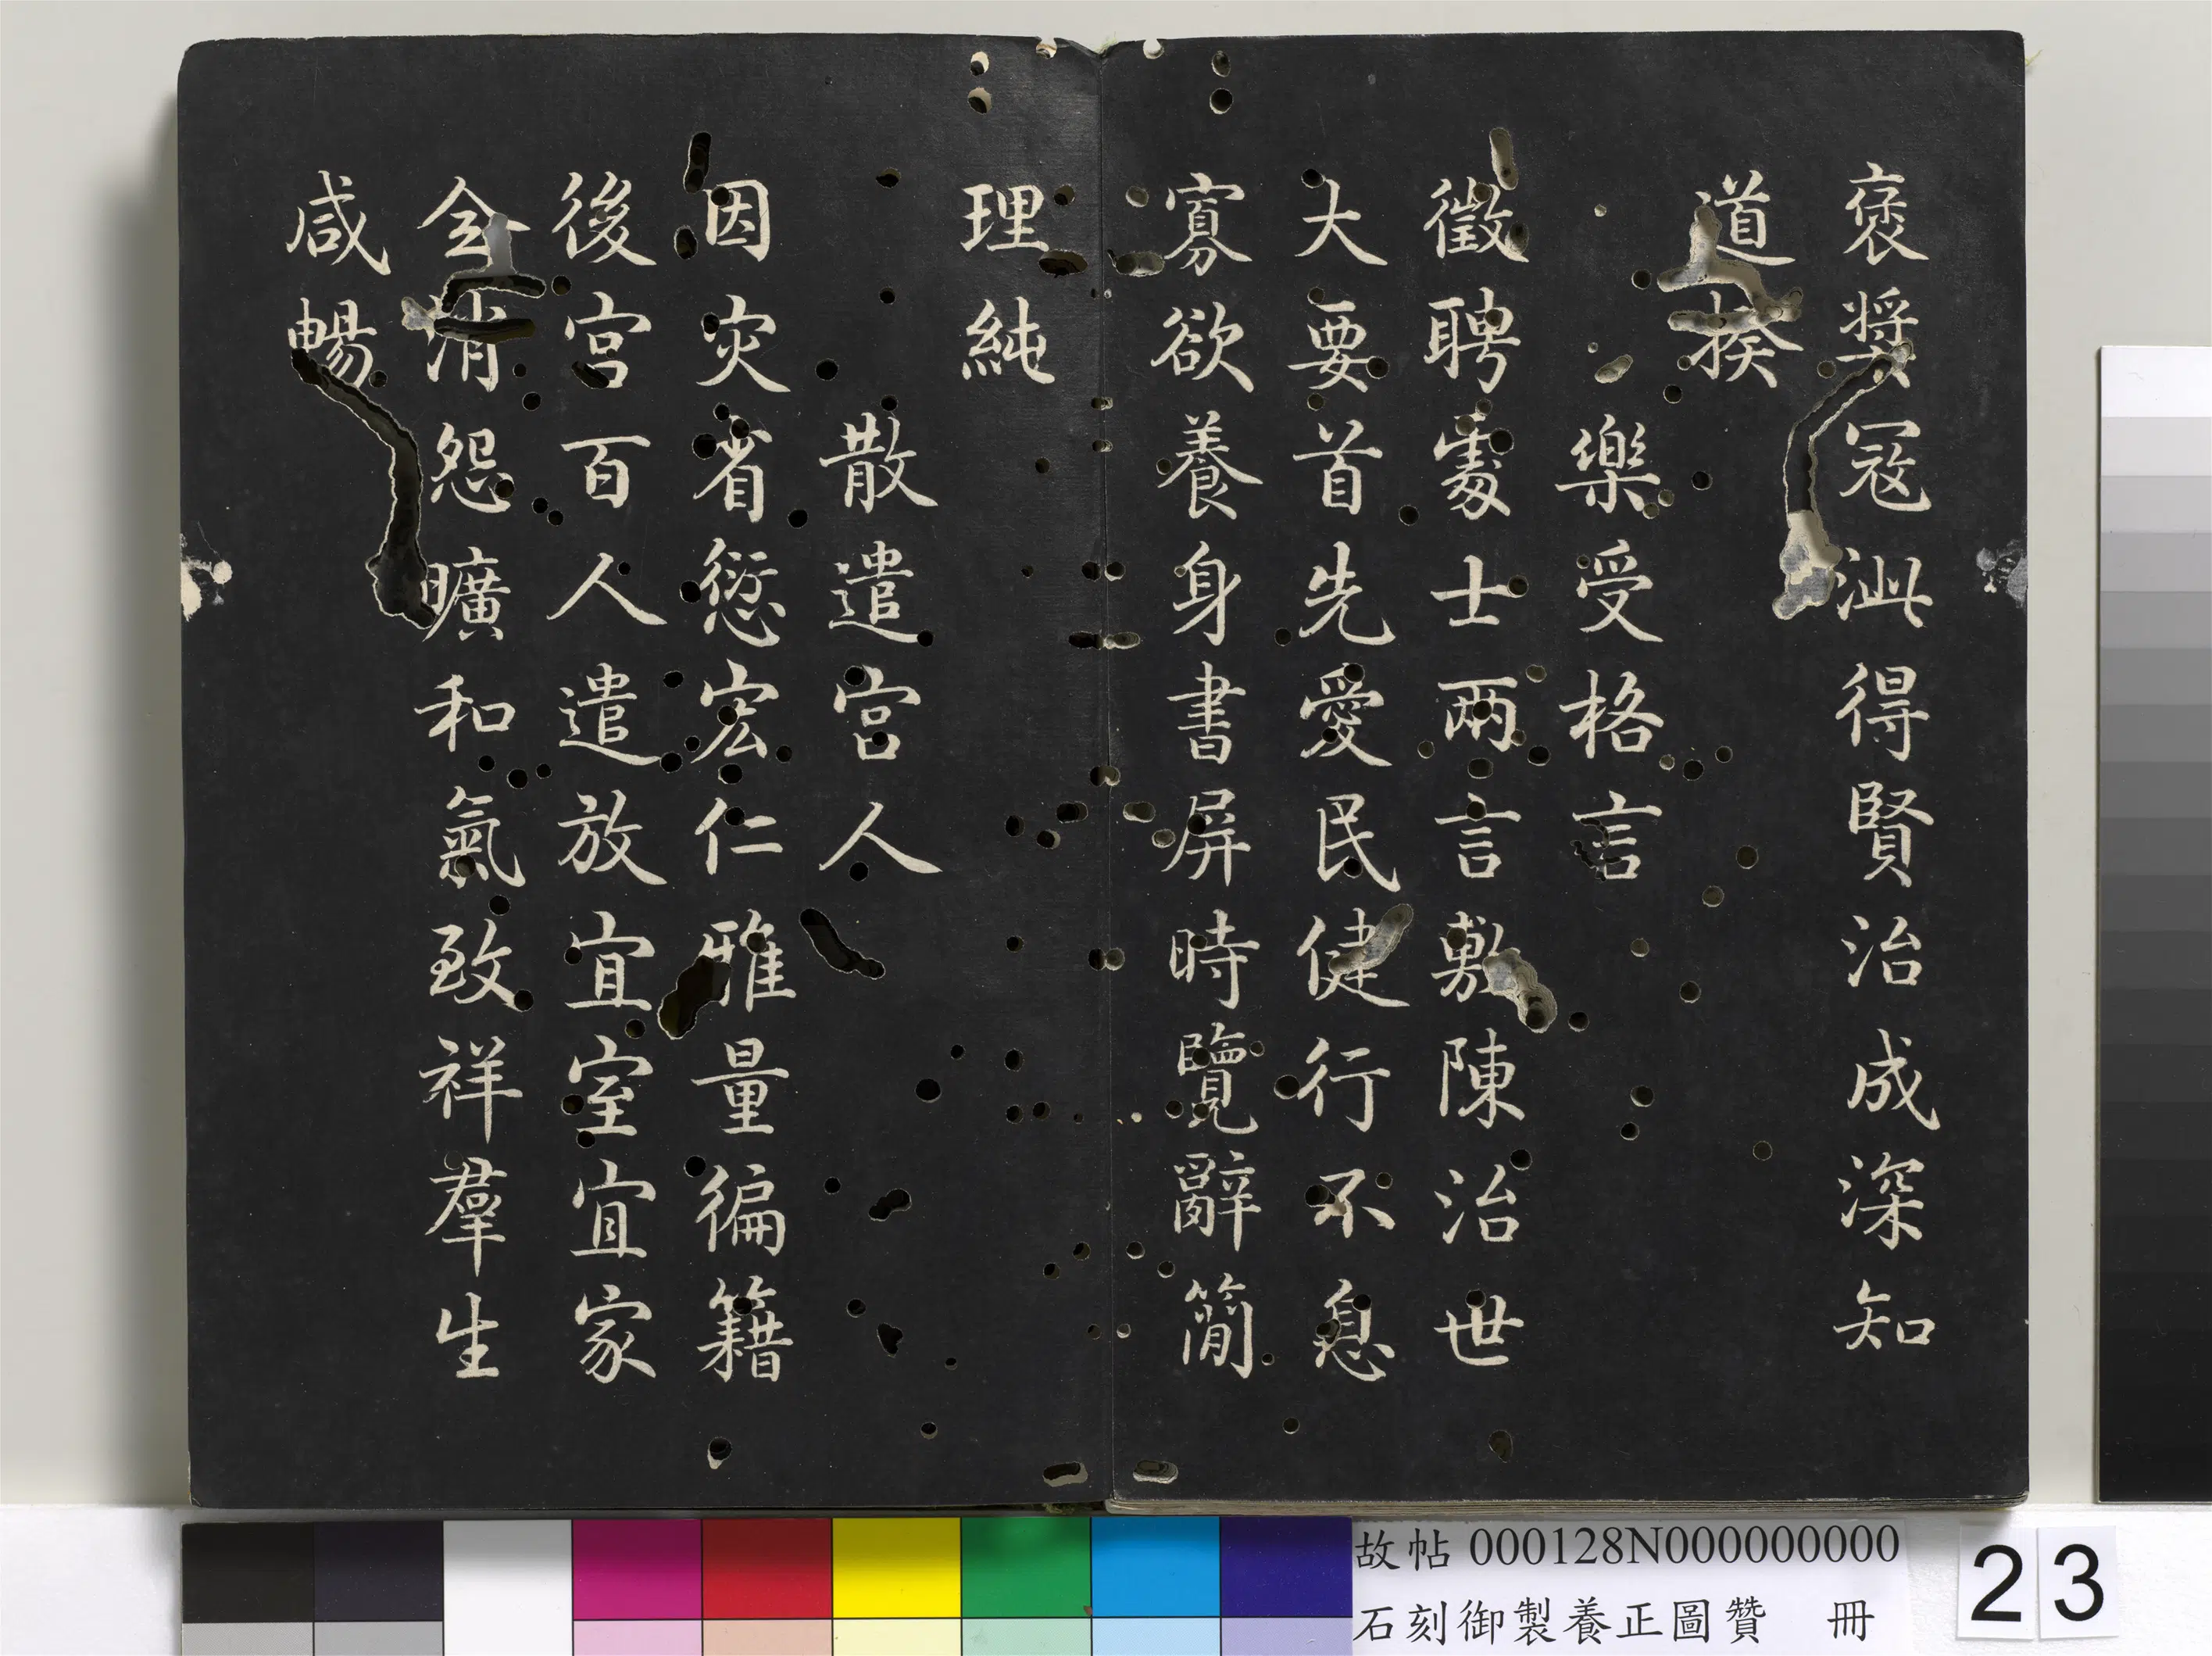 褒奬冦泚得賢治成深知
道揆
樂受格言
徵聘處士兩言敷陳治世
大要首先愛民健行不息
寡欲養身書屏時覽辭簡
理純
散遣宮人
因灾省愆宏仁雅量徧籍
後宮百人遣放宜室宜家
令消怨曠和氣致祥羣生
咸暢
故帖 000128N000000000
石刻御製養正圖贊 冊
23